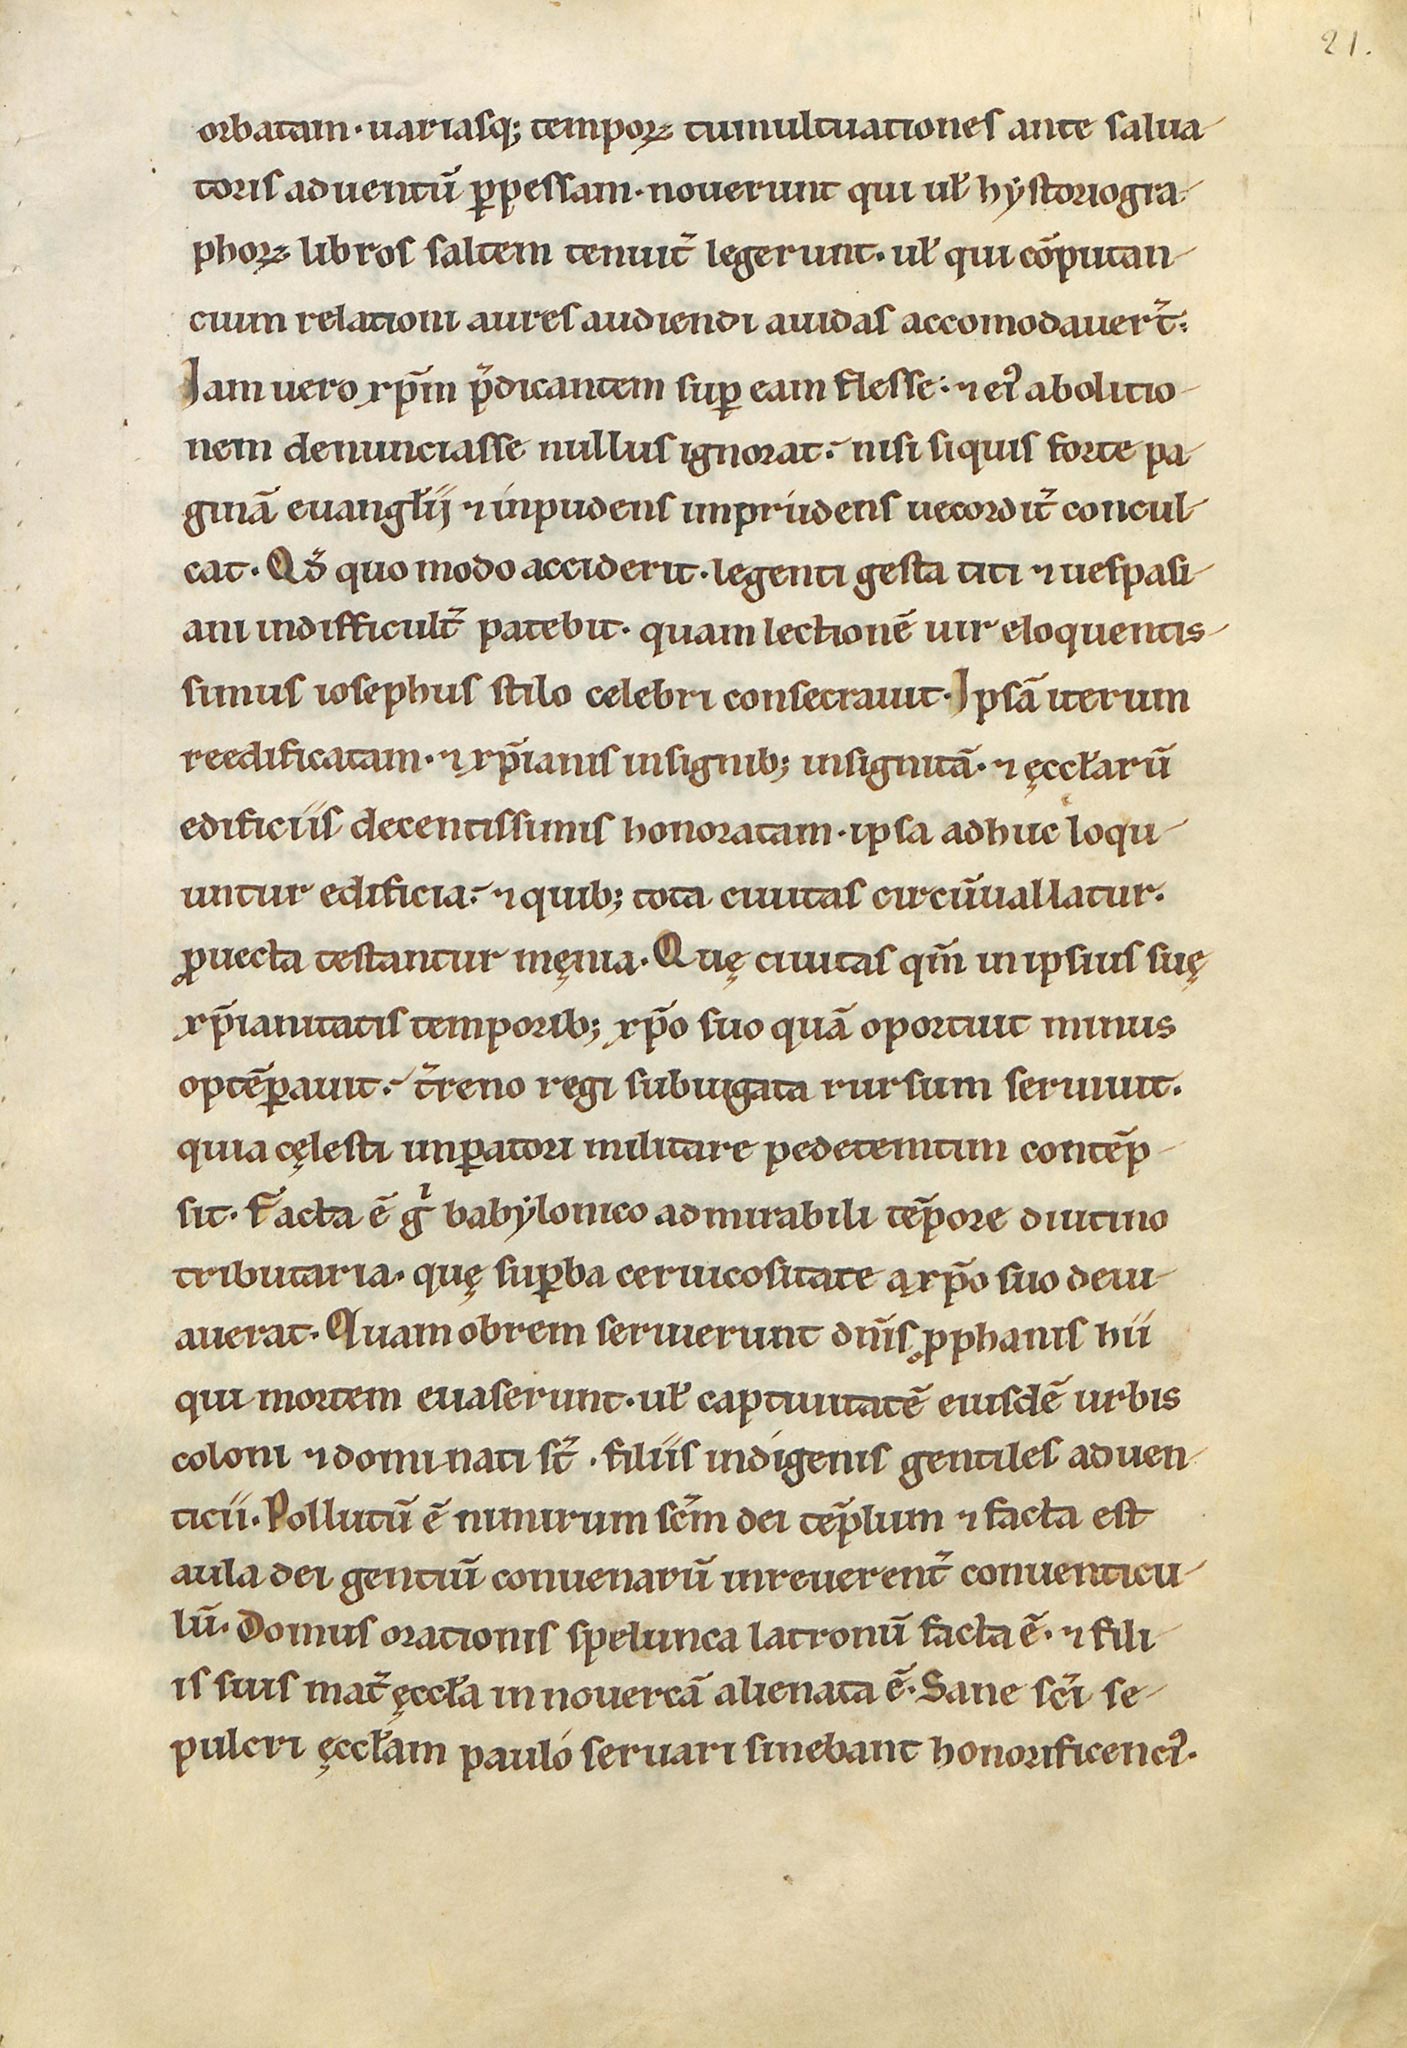 21.
orbatam · uariasq; tempoꝝ tumultuationes ante salua-
toris aduentū ꝑpessam · nouerunt qui uł hystoriogra-
phoꝝ libros saltem tenuit̄ legerunt · uł qui cōputan-
cium relationi aures audiendi auidas accomodauer̄t:
Jam uero xp̄m p̄dicantem suꝑ eam flesse: ⁊ eiꝰ abolitio-
nem denunciasse nullus ignorat: nisi siquis forte pa-
ginā euangłij ⁊ inpudens imprudens uecordit̄ concul-
cat · Qd̄ quo modo acciderit · legenti gesta titi ⁊ uespasi-
ani indifficult̄ patebit · quam lectionē uir eloquentis-
simus iosephus stilo celebri consecrauit · Jpsā iterum
reedificatam · ⁊ xp̄ianis insignib; insignitā · ⁊ ęccłarū
edificiis decentissimis honoratam · ipsa adhuc loqu-
untur edificia: ⁊ quib; tota ciuitas circūuallatur ·
ꝓuecta testantur męnia · Quę ciuitas qm̄ in ipsius suę
xp̄ianitatis temporib; xp̄o suo quā oportuit minus
optēꝑauit: t̄reno regi subiugata rursum seruiuit ·
quia cęlesti imꝑatori militare pedetemtim contēp-
sit · Facta ē gͥ babylonico admirabili tēpore diutino
tributaria · quę suꝑba ceruicositate a xp̄o suo deui-
auerat · Quamobrem seruierunt dn̄is ꝓphanis hii
qui mortem euaserunt · uł captiuitatē eiusdē urbis
coloni ⁊ dominati st̄ · filiis indigenis gentiles aduen-
ticii · Pollutū ē nimirum scm̄ dei tēplum ⁊ facta est
aula dei gentiū conuenarū inreuerent̄ conuenticu-
lū · Domus orationis spelunca latronū facta ē · ⁊ fili-
is suis mat̄ ęccła in nouercā alienata ē · Sane sc̄i se-
pulcri ęccłam paulo seruari sinebant honorificenciꝰ ·